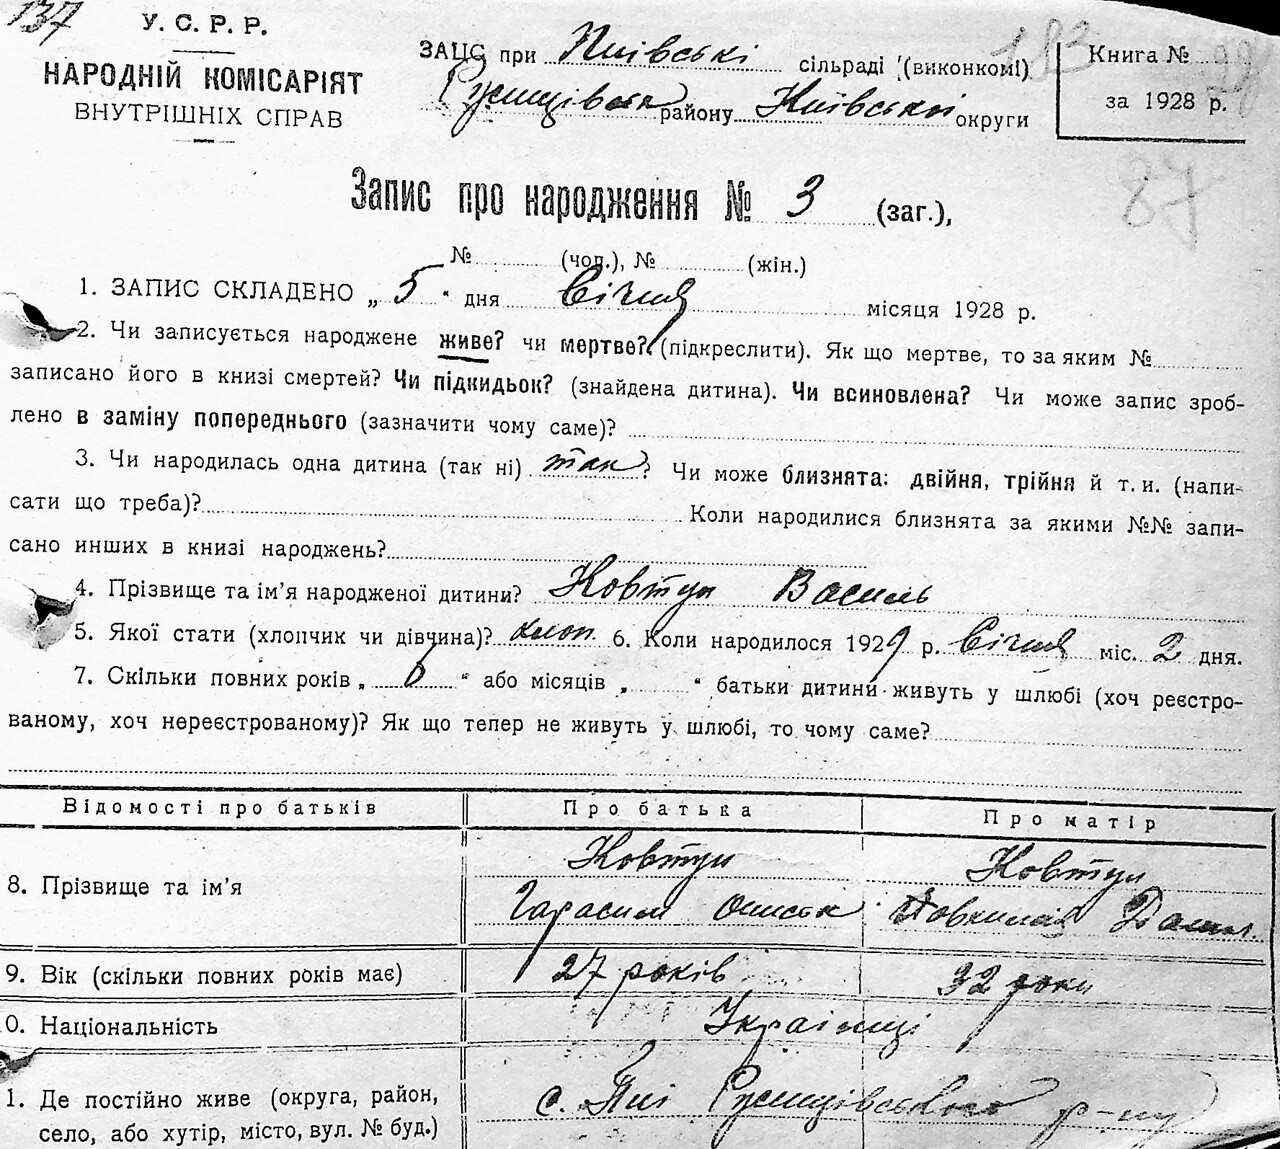 137
У. С. Р. Р.
НАРОДНІЙ КОМІСАРІЯТ
ВНУТРІШНІХ СПРАВ
ЗАЦС при Пиївські сільраді (виконкомі)
району Київської округи
183
Книга №
за 1928 р.
87
Запис про народження № 3 (заг.),
№ (чол.), № (жін.)
1. ЗАПИС СКЛАДЕНО „ 5 “ дня Січня місяця 1928 р.
2. Чи записується народжене живе? чи мертве? (підкреслити). Як що мертве, то за яким №
записано його в книзі смертей? Чи підкидьок? (знайдена дитина). Чи всиновлена? Чи може запис зроб-
лено в заміну попереднього (зазначити чому саме)?
3. Чи народилась одна дитина (так ні) так? Чи може близнята: двійня, трійня й т. и. (напи-
сати що треба)? Коли народилися близнята за якими №№ запи-
сано инших в книзі народжень?
4. Прізвище та ім’я народженої дитини? Ковтун Василь
5. Якої стати (хлопчик чи дівчина)? хлоп. 6. Коли народилося 1929 р. Січня міс. 2 дня.
7. Скільки повних років „ 6 “ або місяців „ “ батьки дитини живуть у шлюбі (хоч реєстро-
ваному, хоч нереєстрованому)? Як що тепер не живуть у шлюбі, то чому саме?
Відомості про батьків Про батька Про матір
8. Прізвище та ім’я Ковтун Ковтун
Гарасим
9. Вік (скільки повних років має) 27 років 32 роки
0. Національність Українці
1. Де постійно живе (округа, район, с. Пиї р-ну
село, або хутір, місто, вул. № буд.)